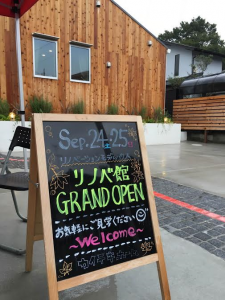 Sep.24-25
リノベ館
GRAND OPEN
お気軽にご見学ください
~Welcome~